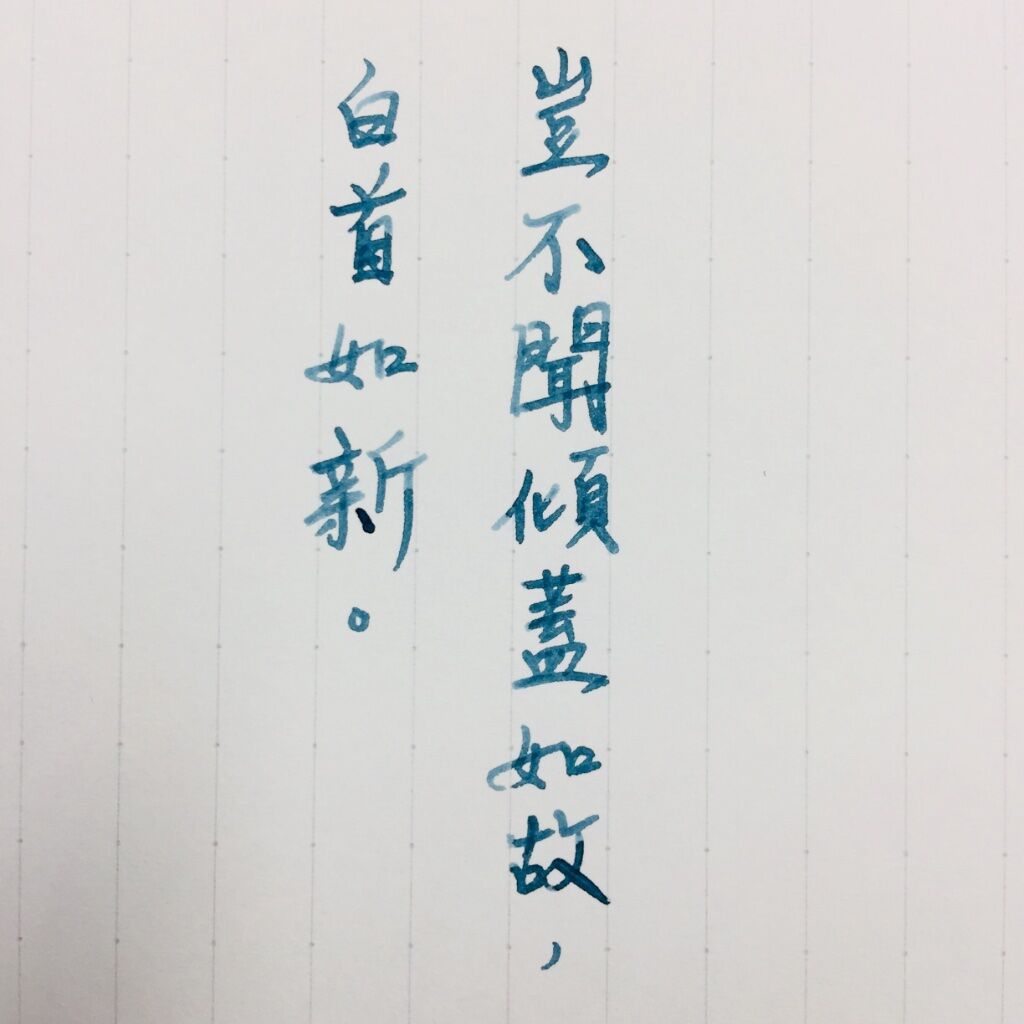 豈不聞傾蓋如故，
白首如新。